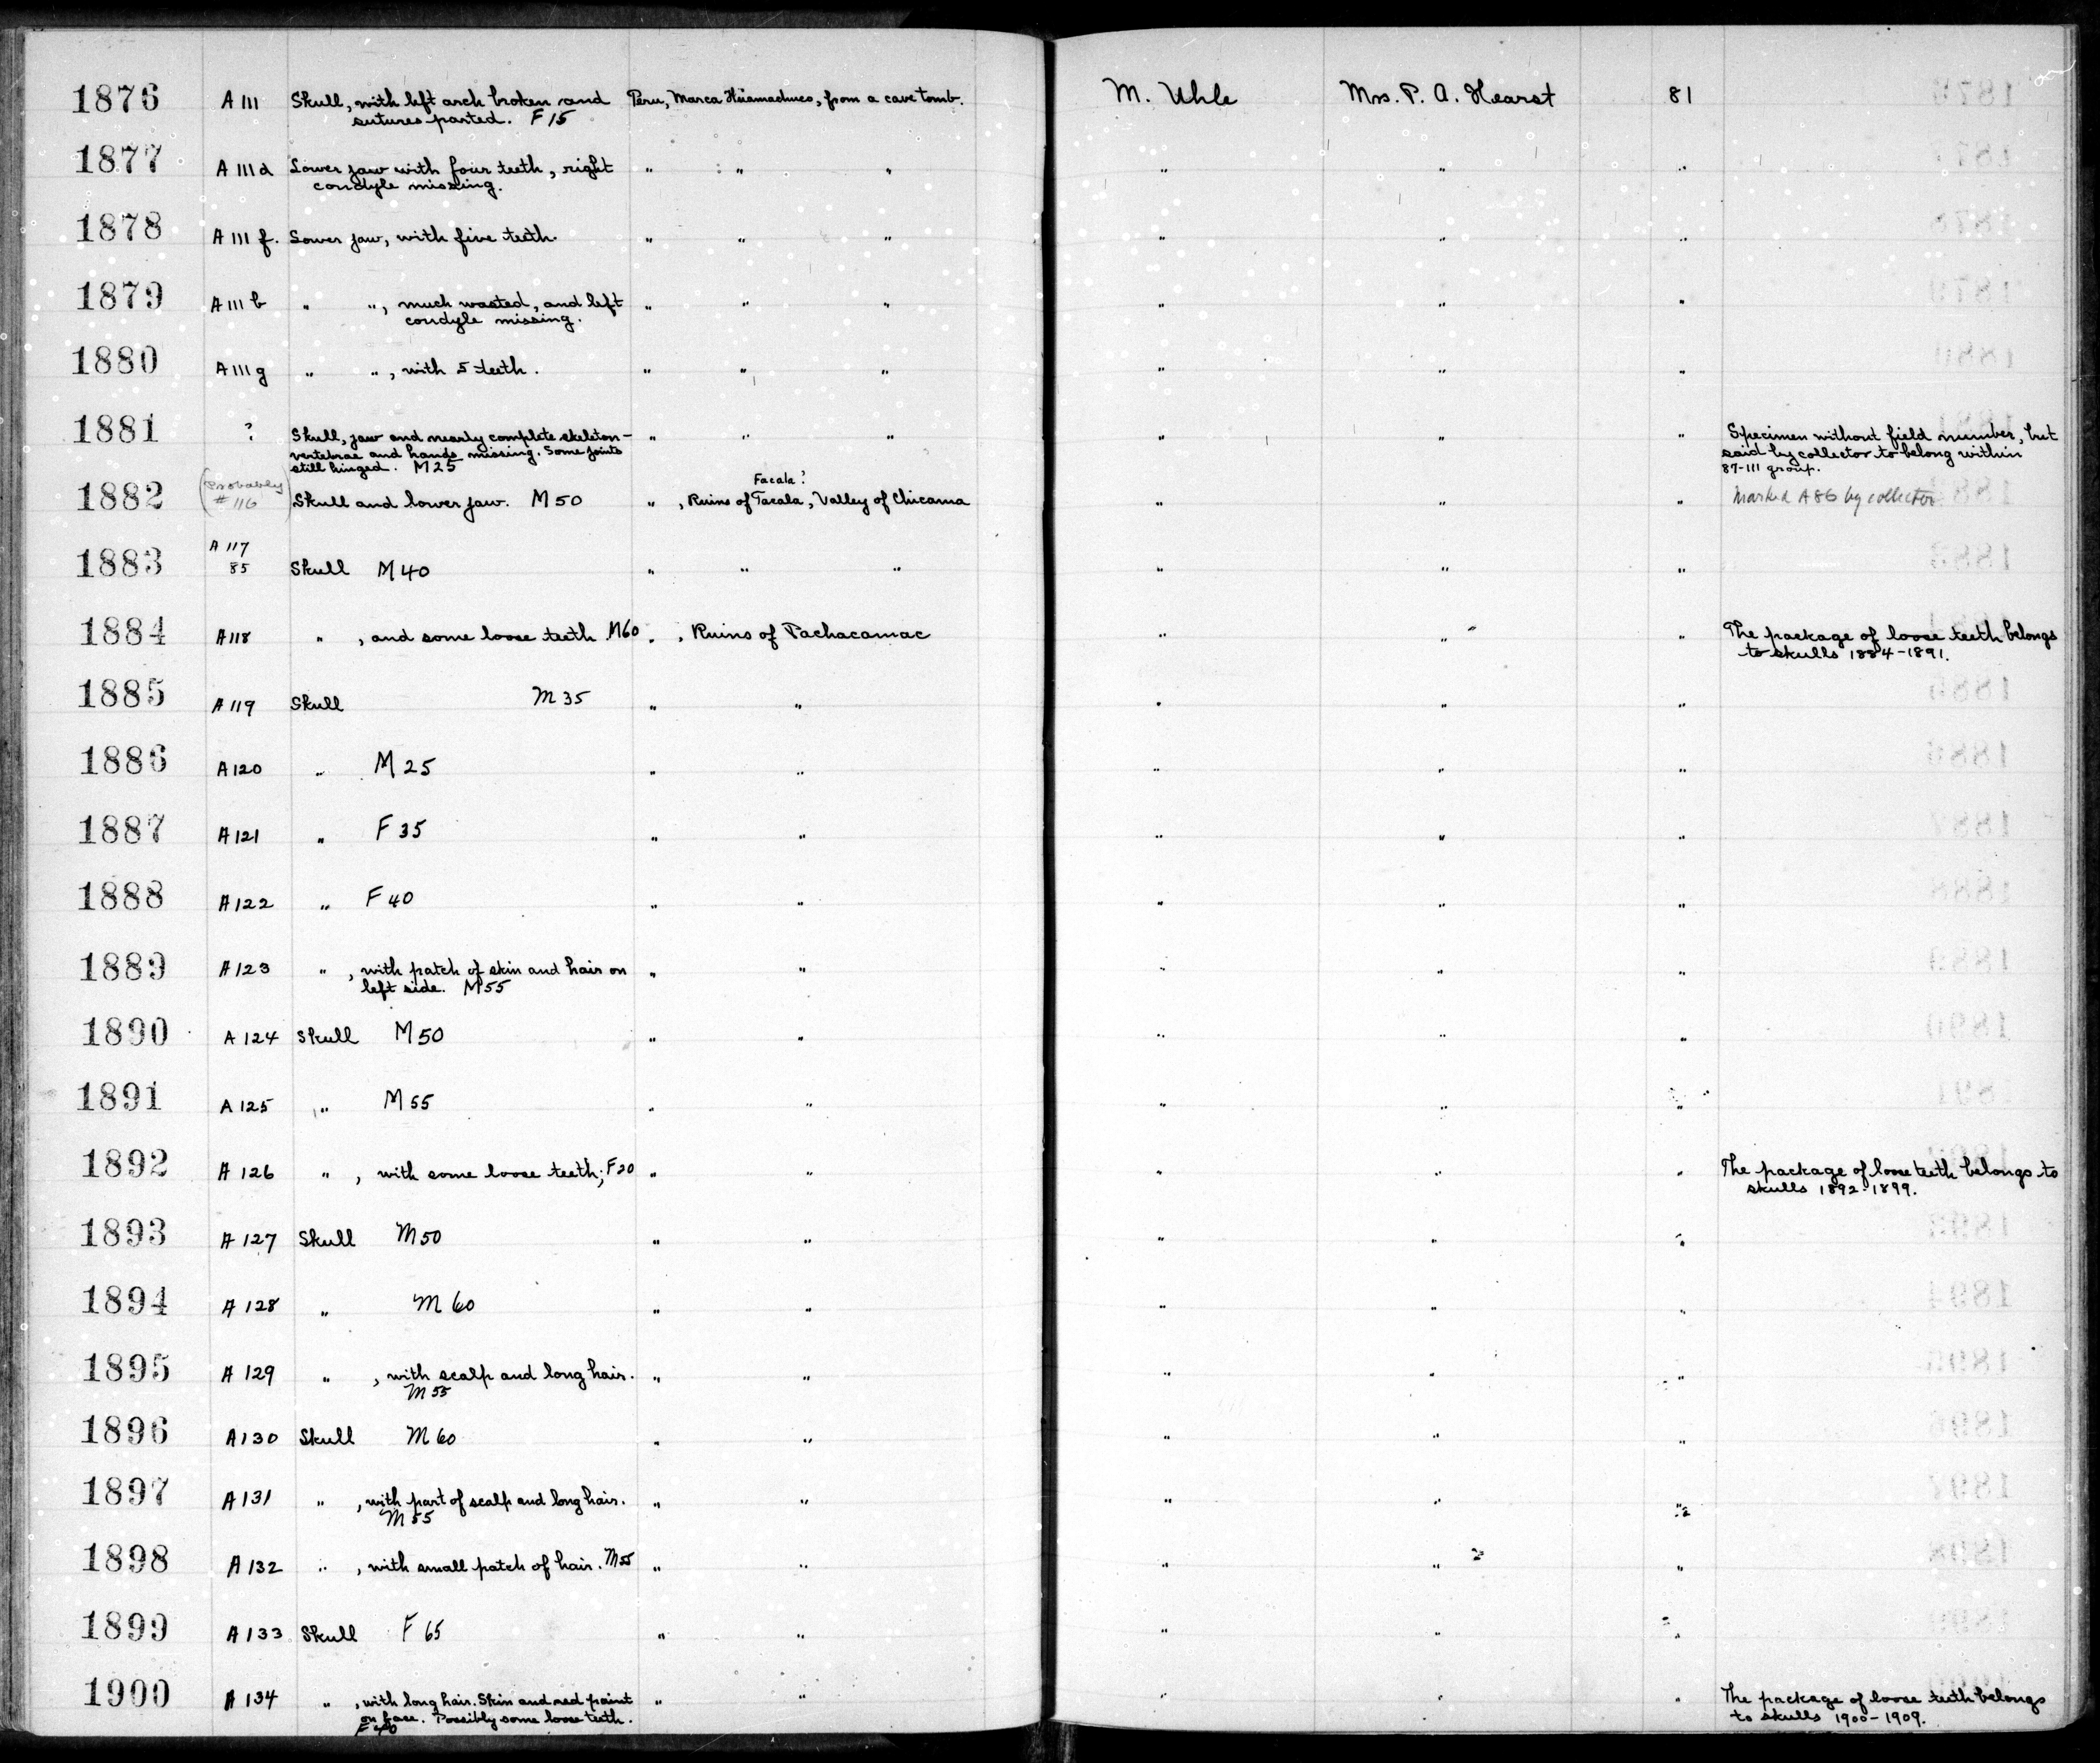 1876 A 111 Skull, with left arch broken and Peru, Marca Huamachuco, from a cave tomb. M. Uhle Mrs. P. A. Hearst 81
sutures parted. F 15
1877 A 111 d Lower jaw with four teeth, right " " " " " "
condyle missing.
1878 A 111 f. Lower jaw, with five teeth. " " " " " "
1879 A 111 b " ", much wasted, and left " " " " " "
condyle missing.
1880 A 111 g " ", with 5 teeth. " " " " " "
1881 ? Skull, jaw and nearly complete skeleton— " " " " " " Specimen without field number, but
vertebrae and hands missing. Some joints said by collector to belong within
still hinged. M 25 87-111 group.
Facala?
1882 (Probably # 116) Skull and lower jaw. M 50 " , Ruins of Tacala, Valley of Chicama " " " Marked A 86 by collector
A 117
1883 85 Skull M 40 " " " " " "
1884 A 118 " , and some loose teeth M60 " , Ruins of Pachacamac " " " The package of loose teeth belongs
to skulls 1884-1891.
1885 A 119 Skull M 35 " " " " "
1886 A 120 " M 25 " " " " "
1887 A 121 " F 35 " " " " "
1888 A 122 " F 40 " " " " "
1889 A 123 " , with patch of skin and hair on " " " " "
left side. M 55
1890 A 124 Skull M 50 " " " " "
1891 A 125 " M 55 " " " " "
1892 A 126 " , with some loose teeth; F20 " " " " " The package of loose teeth belongs to
skulls 1892-1899.
1893 A 127 Skull M 50 " " " " "
1894 A 128 " M 60 " " " " "
1895 A 129 " , with scalp and long hair. " " " " "
M 55
1896 A 130 Skull M 60 " " " " "
1897 A 131 " , with part of scalp and long hair. " " " " "
M 55
1898 A 132 " , with small patch of hair. M 55 " " " " "
1899 A 133 Skull F 65 " " " " "
1900 A 134 " , with long hair. Skin and red paint " " " " " The package of loose teeth belongs
on face. Possibly some loose teeth. to skulls 1900-1909.
F 40